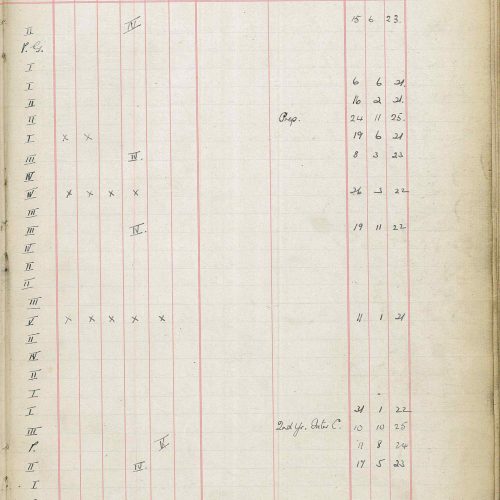 II IV 15 6 23
P. G.
I
I 6 6 21
II 16 2 21
II Prep. 24 11 25
I x x 19 6 21
III IV. 8 3 23
IV
IV x x x x 26 3 22
III
III IV. 19 11 22
IV
II
II
III
V x x x x x 11 1 21
II
IV
II
I
I 21 1 22
III 2nd Yr. Inter C. 10 10 25
P. V 11 8 24
II IV. 17 5 23
I